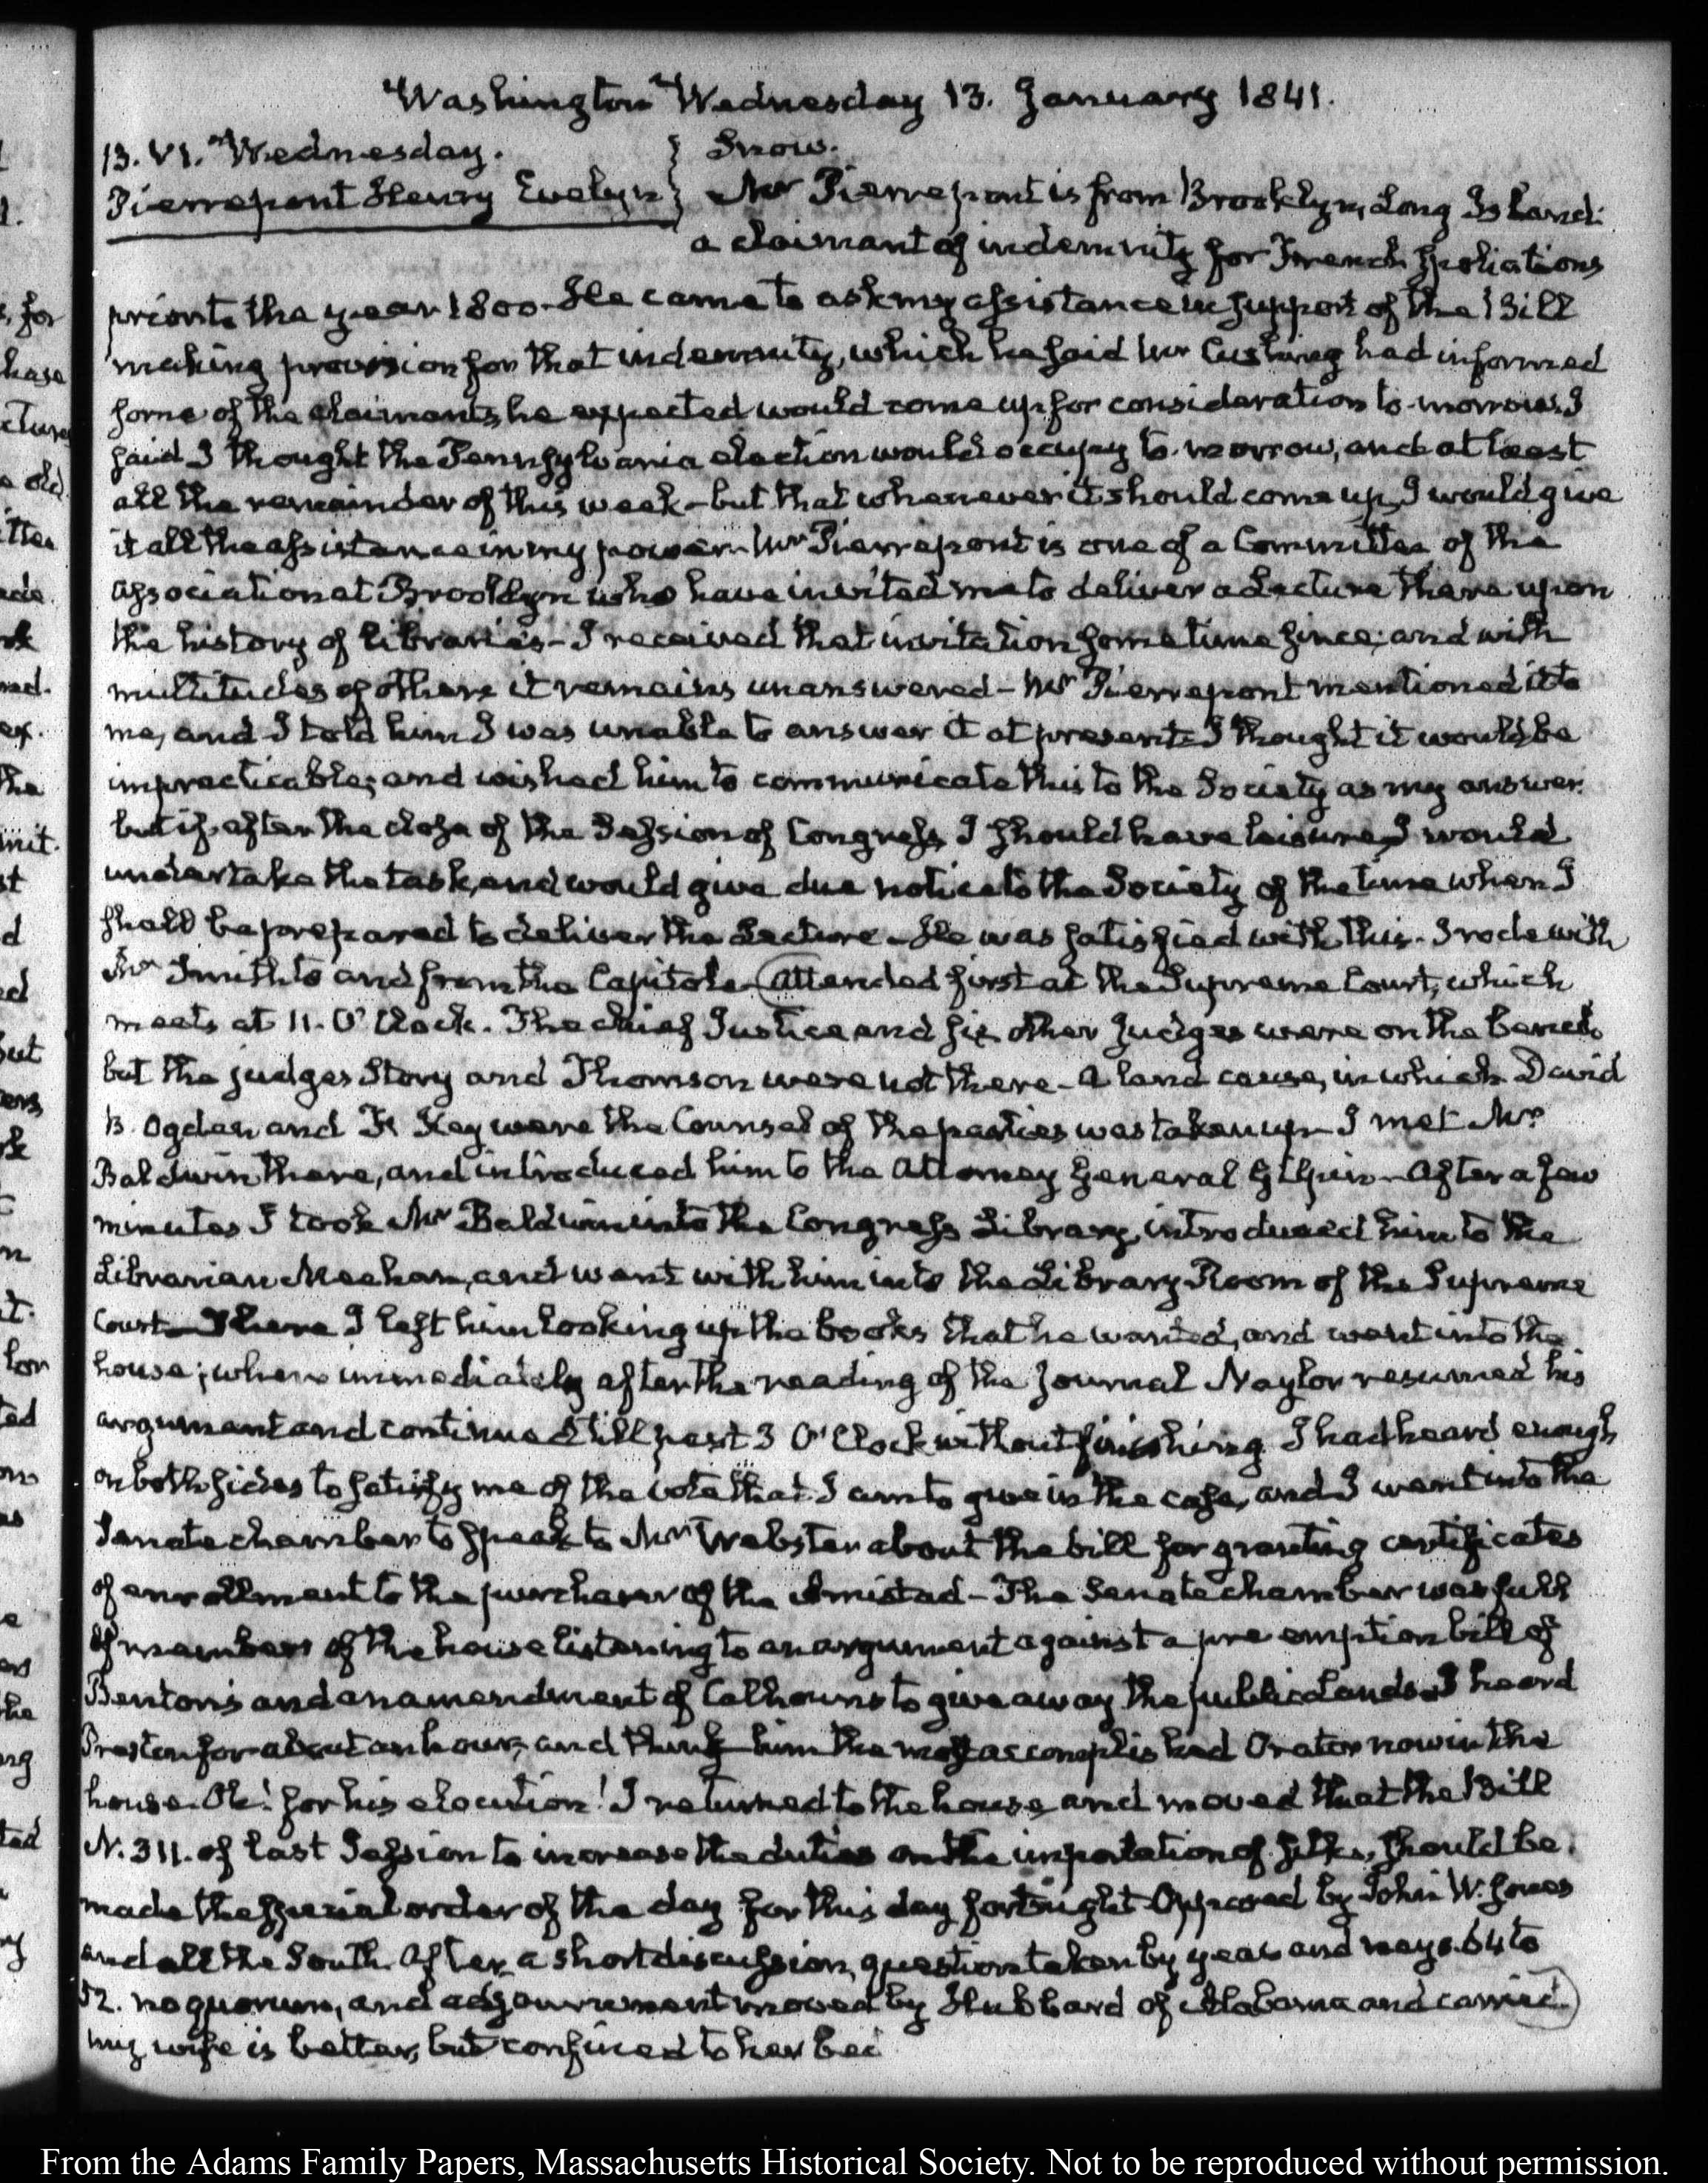 Washington Wednesday 13. January 1841.
13. VI. Wednesday.
Snow.
Pierrepont Henry Evelyn
Mr Pierrepont is from Brooklyn, Long Island:
a claimant of indemnity for French Spoliations
prior to the year 1800. He came to ask my assistance in support of the Bill
making provision for that indemnity, which he said Mr Cushing had informed
some of the claimants, he expected would come up for consideration to-morrow. I
said I thought the Pennsylvania election would occupy to-morrow, and at least
all the remainder of this week - but that whenever it should come up, I would give
it all the assistance in my power. Mr Pierrepont is one of a Committee of the
association at Brooklyn who have invited me to deliver a Lecture there upon
the history of libraries - I received that invitation some time since; and with
multitudes of others it remains unanswered - Mr Pierrepont mentioned it to
me, and I told him I was unable to answer it at present - I thought it would be
impracticable; and wished him to communicate this to the Society as my answer.
but if after the close of the Session of Congress I should have leisure, I would
undertake the task, and would give due notice to the Society of the time when I
shall be prepared to deliver the Lecture - He was satisfied with this. I rode with
Mr Smith to and from the Capitol - attended first at the Supreme Court, which
meets at 11. O'Clock. The chief Justice and six other judges were on the bench
but the judges Story and Thomson were not there - A land cause, in which David
B. Ogden and Fr Key were the Counsel of the parties was taken up - I met Mr
Baldwin there, and introduced him to the Attorney General Gilpin - After a few
minutes I took Mr Baldwin into the Congress Library, introduced him to the
Librarian Meehan, and went with him into the Library Room of the Supreme
Court - There I left him looking up the books that he wanted, and went into the
house; where immediately after the reading of the journal Naylor resumed his
argument and continued till past 3 O'Clock without finishing. I had heard enough
on both sides to satisfy me of the vote that I am to give in the case, and I went into the
Senate chamber to speak to Mr Webster about the bill for granting certificates
of enrollment to the purchaser of the Amistad - The Senate chamber was full
of members of the house listening to an argument against a pre emption bill of
Benton's and an amendment of Calhoun's to give away the public Lands. I heard
Preston for about an hour, and think him the most accomplished Orator now in the
house. Oh! for his elocution! I returned to the house, and moved that the Bill
N. 311. of last Session to increase the duties on the importation of silks, should be
made the special order of the day for this day fortnight - Opposed by John W. Jones
and all the South. After a short discussion, question taken by yeas and nays. 64 to
52. no quorum, and adjournment moved by Hubbard of Alabama and carried.
my wife is better, but confined to her bed
From the Adams Family Papers, Massachusetts Historical Society. Not to be reproduced without permission.